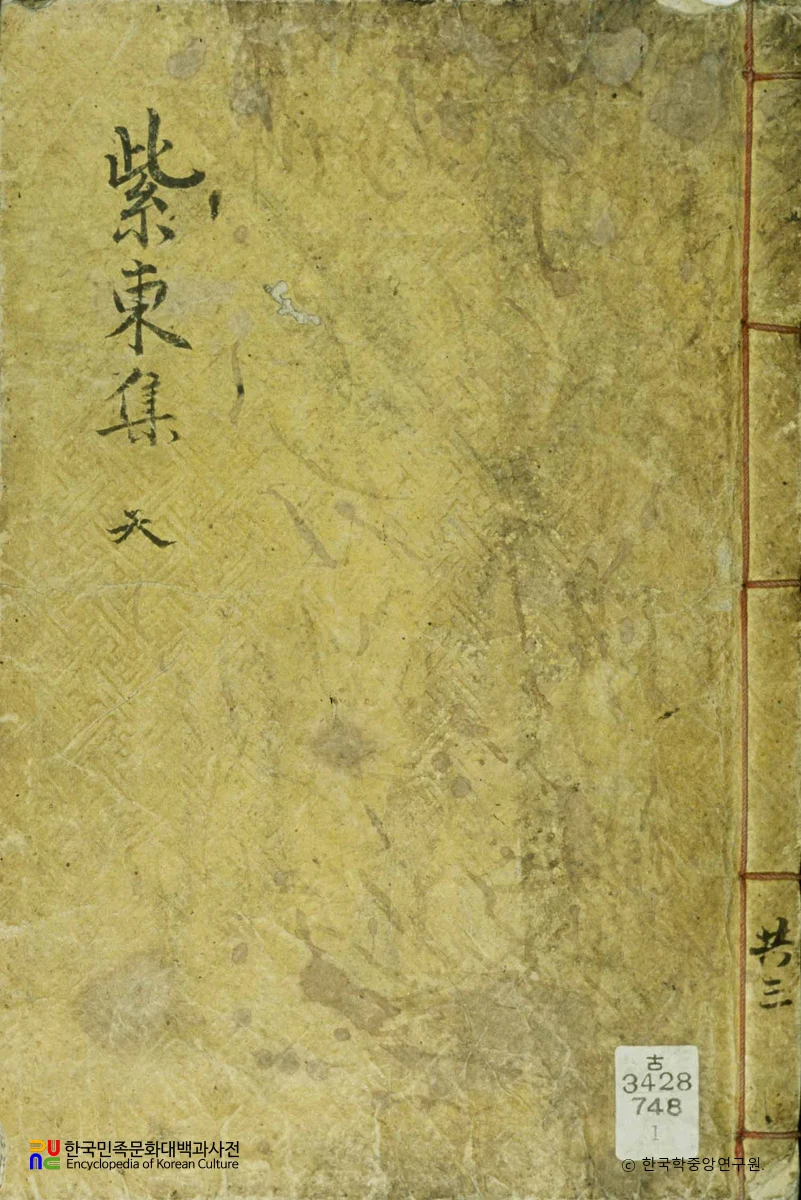 紫東集 天
共三
古
3428
748
1
한국민족문화대백과사전
Encyclopedia of Korean Culture
© 한국학중앙연구원.